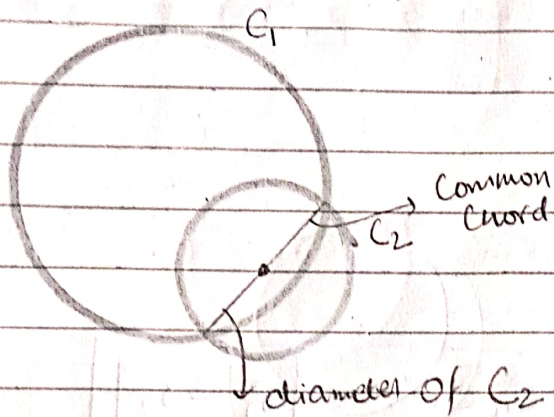 C₁
Common
Chord
C₂
diameter of C₂